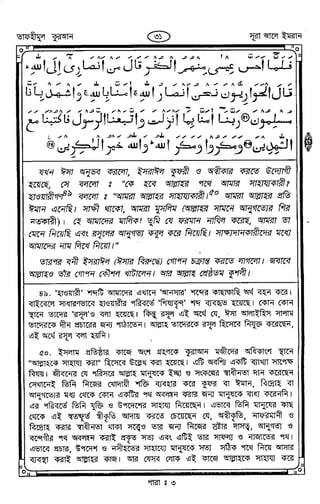 তাফহীমুল কুরআন
৩১
সূরা আলে ইমরান
فَلَمَّآ اَحَسَّ عِيْسٰى مِنْهُمُ الْكُفْرَ قَالَ مَنْ اَنْصَارِىْٓ اِلَى اللّٰهِ ؕ
قَالَ الْحَوَارِيُّوْنَ نَحْنُ اَنْصَارُ اللّٰهِ ۚ اٰمَنَّا بِاللّٰهِ ۚ وَاشْهَدْ بِاَنَّا
مُسْلِمُوْنَ ۝ رَبَّنَآ اٰمَنَّا بِمَآ اَنْزَلْتَ وَاتَّبَعْنَا الرَّسُوْلَ فَاكْتُبْنَا مَعَ
الشّٰهِدِيْنَ ۝ وَمَكَرُوْا وَمَكَرَ اللّٰهُ ؕ وَاللّٰهُ خَيْرُ الْمٰكِرِيْنَ ۝
যখন ঈসা অনুভব করলো, ইসরাঈল কুফরী ও অস্বীকার করতে উদ্যোগী
হয়েছে, সে বললো ঃ "কে হবে আল্লাহর পথে আমার সাহায্যকারী?
হাওয়ারীগণ৪৯ বললো ঃ "আমরা আল্লাহর সাহায্যকারী।৫০ আমরা আল্লাহর প্রতি
ঈমান এনেছি। সাক্ষী থাকো, আমরা মুসলিম (আল্লাহর সামনে আনুগত্যের শির
নতকারী)। হে আমাদের মালিক! তুমি যে ফরমান নাযিল করেছ, আমরা তা
মেনে নিয়েছি এবং রসূলের আনুগত্য কবুল করে নিয়েছি। সাক্ষ্যদানকারীদের মধ্যে
আমাদের নাম লিখে নিয়ো।"
তারপর বনী ইসরাঈল (ঈসার বিরুদ্ধে) গোপন চক্রান্ত করতে লাগলো। জবাবে
আল্লাহও তাঁর গোপন কৌশল খাটালেন। আর আল্লাহ শ্রেষ্ঠতম কুশলী।
৪৯. 'হাওয়ারী' শব্দটি আমাদের এখানে 'আনসার' শব্দের কাছাকাছি অর্থ বহন করে।
বাইবেলে সাধারণভাবে হাওয়ারীর পরিবর্তে 'শিষ্যবৃন্দ' শব্দ ব্যবহৃত হয়েছে। কোন কোন
স্থানে তাদের 'রসূল'ও বলা হয়েছে। কিন্তু রসূল এই অর্থে যে, ঈসা আলাইহিস সালাম
তাদেরকে দীন প্রচারের জন্য পাঠাতেন। আল্লাহ তাদেরকে রসূল হিসেবে নিযুক্ত করেছেন,
এই অর্থে রসূল বলা হয়নি।
৫০. ইসলাম প্রতিষ্ঠার কাজে অংশ গ্রহণকে কুরআন মজীদের অধিকাংশ স্থানে
"আল্লাহকে সাহায্য করা" হিসেবে উল্লেখ করা হয়েছে। এটি অবশ্যি একটি ব্যাখ্যা সাপেক্ষ
বিষয়। জীবনের যে পরিসরে আল্লাহ মানুষকে ইচ্ছা ও সংকল্পের স্বাধীনতা দান করেছেন
সেখানেই তিনি নিজের খোদায়ী শক্তি ব্যবহার করে কুফর বা ঈমান, বিদ্রোহ বা
আনুগত্যের মধ্য থেকে কোন একটির পথ অবলম্বন করার জন্য মানুষকে বাধ্য করেননি।
এর পরিবর্তে তিনি যুক্তি ও উপদেশের সাহায্য নিয়েছেন। এভাবে তিনি মানুষের কাছ
থেকে এই স্বতস্ফূর্ত স্বীকৃতি আদায় করতে চেয়েছেন যে, অস্বীকৃতি, নাফরমানী ও
বিদ্রোহ করার স্বাধীনতা থাকা সত্ত্বেও তার জন্য নিজের স্রষ্টার দাসত্ব, আনুগত্য ও
বন্দেগীর পথ অবলম্বন করাই প্রকৃত সত্য এবং এটিই তার সাফল্য ও নাজাতের পথ।
এভাবে প্রচার, উপদেশ ও নসীহতের সাহায্যে মানুষকে সত্য সঠিক পথে নিয়ে আসার
ব্যবস্থা করাই আল্লাহর কাজ। আর যেসব লোক এই কাজে আল্লাহকে সাহায্য করে
পারা ঃ ৩